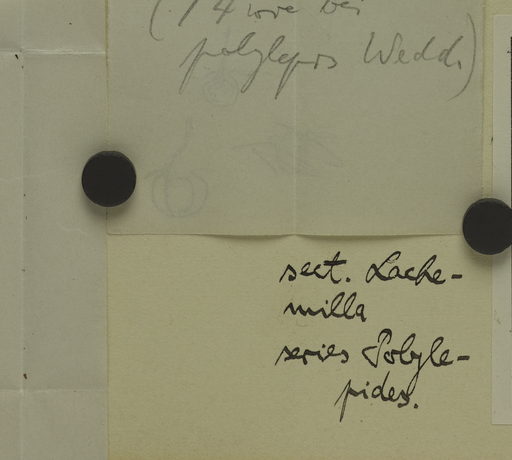 wie bei
polylepis Wedd.)
sect. Lache-
milla
series Polyle-
pides.